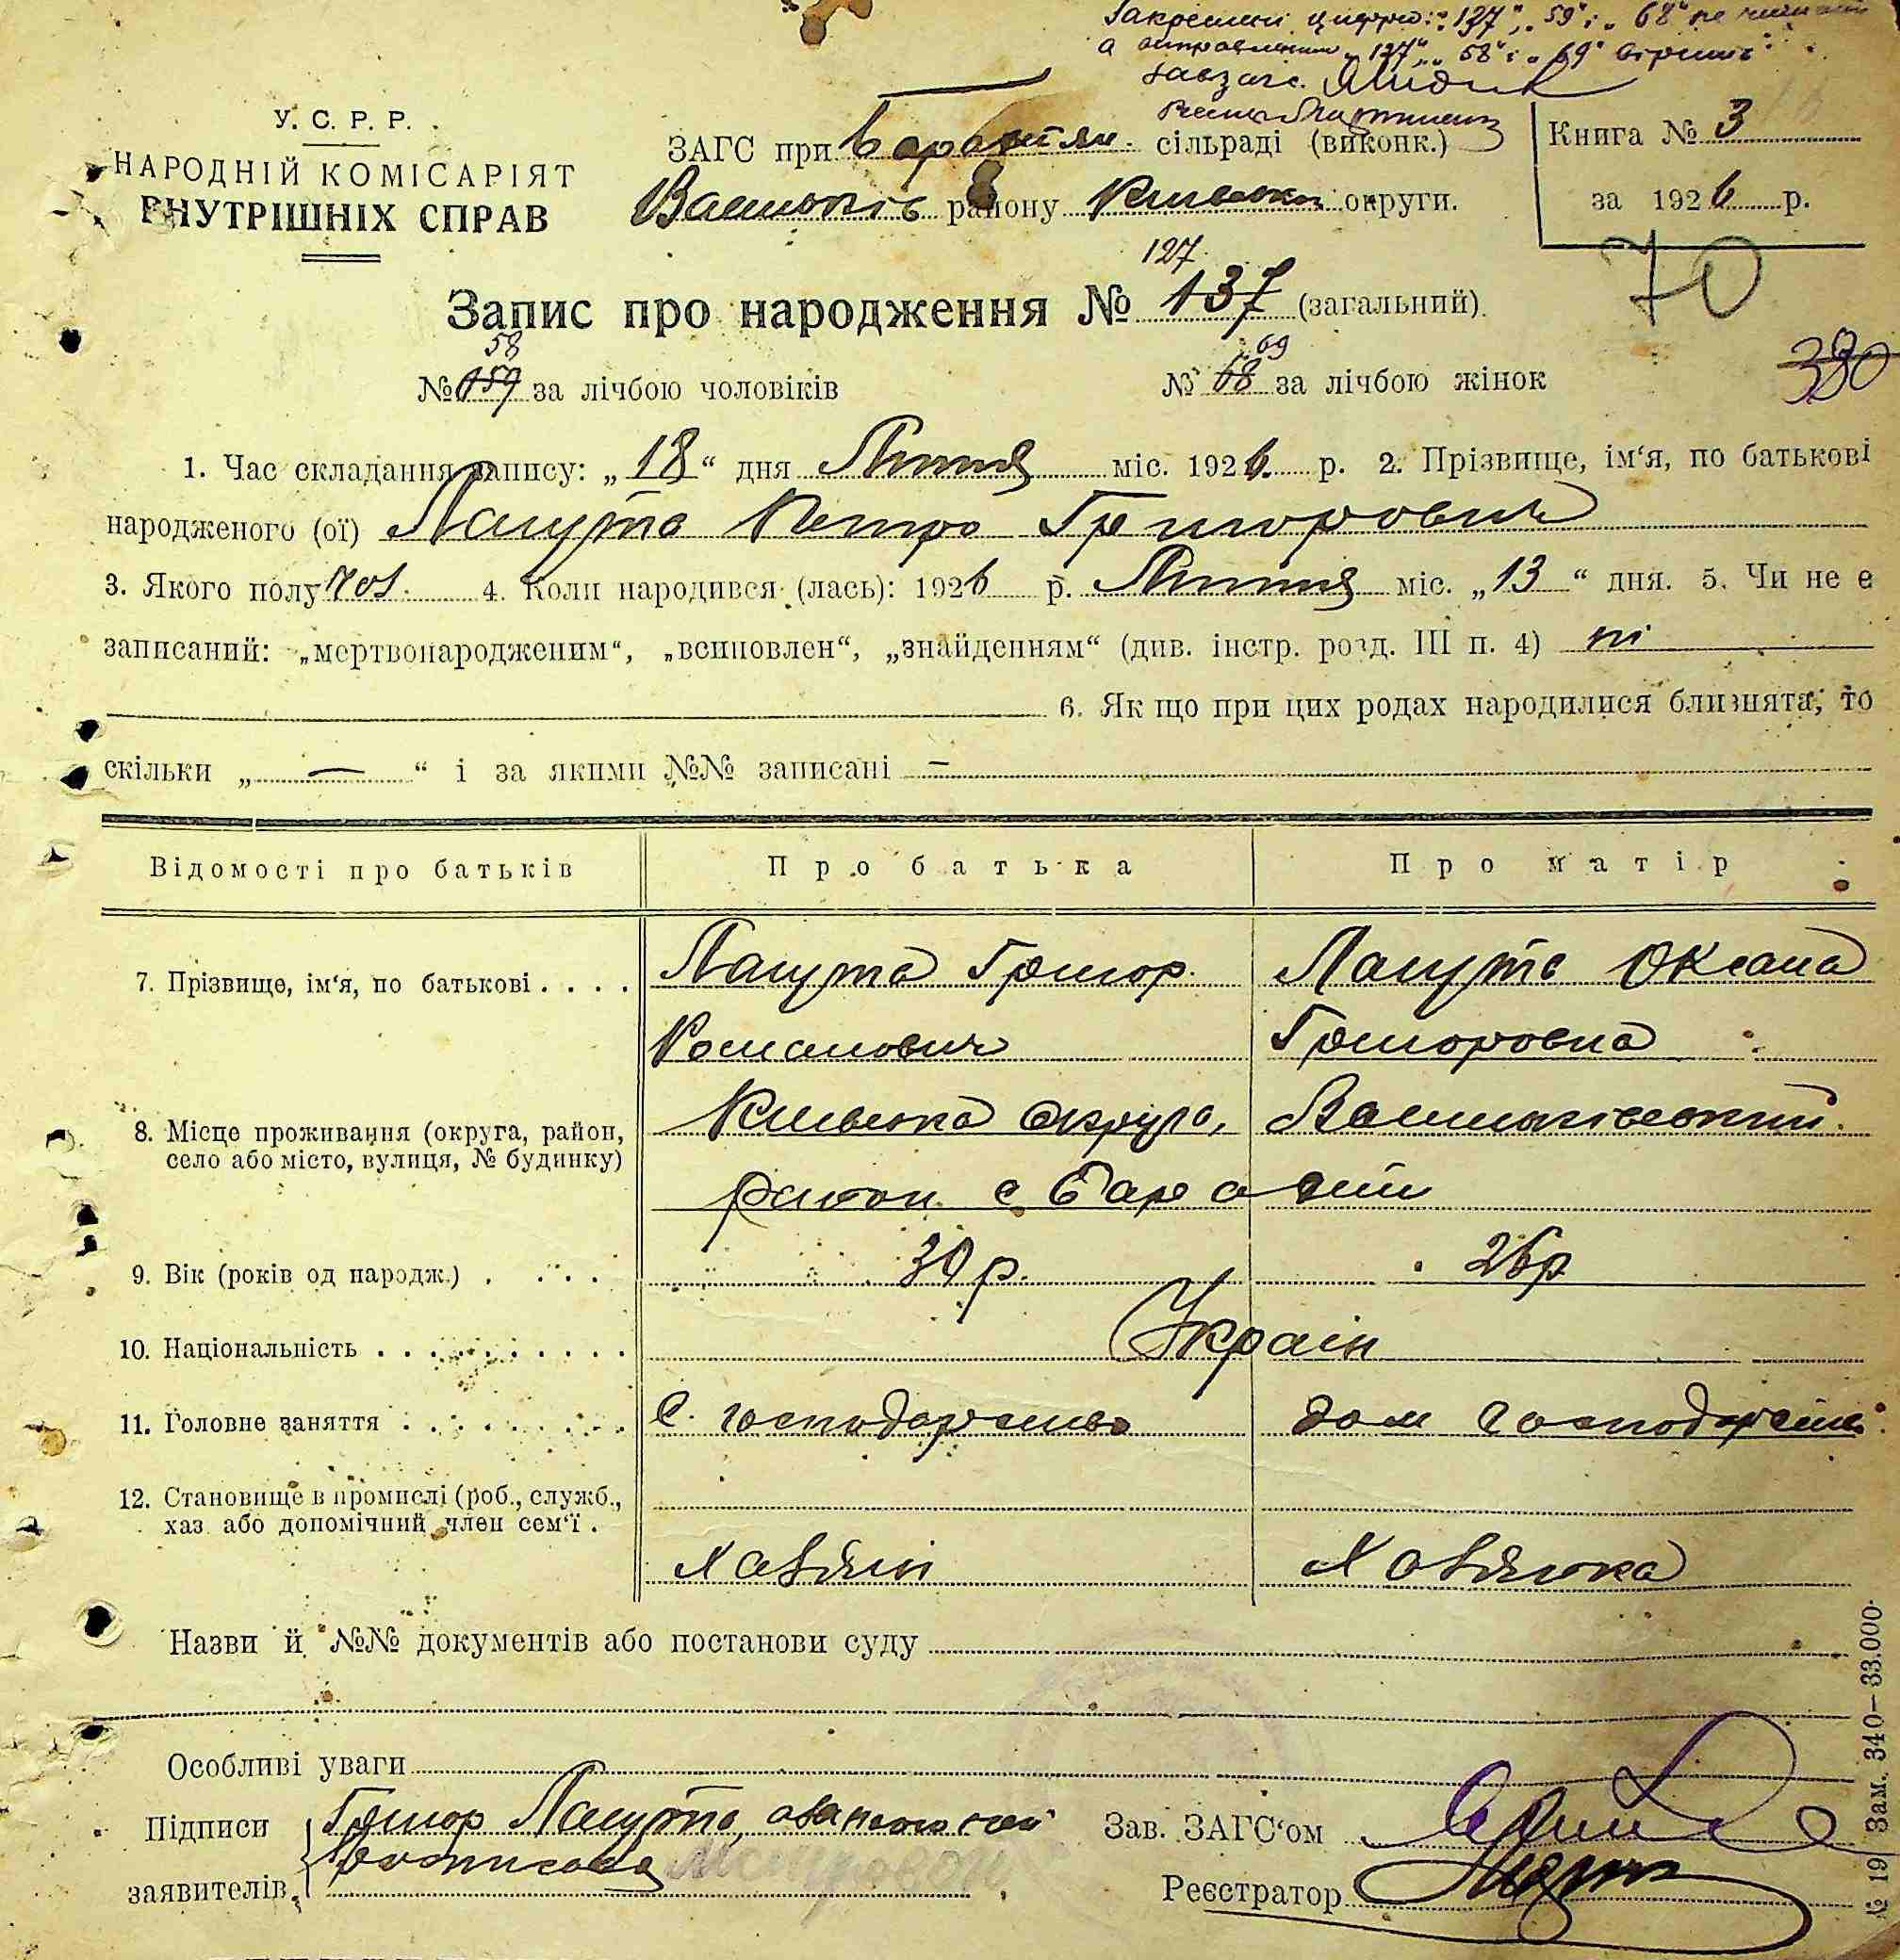 Закреслені цифри: „137“, „59“ і „68“ не читати
а виправленим „127“, „58“ і „69“ вірить
Завзагс.
У. С. Р. Р.
НАРОДНІЙ КОМІСАРІЯТ
ВНУТРІШНІХ СПРАВ
ЗАГС при сільраді (виконк.)
району Київської округи.
Книга № 3
за 1926 р.
70
127
Запис про народження № 137 (загальний)
58 69
№ 59 за лічбою чоловіків № 68 за лічбою жінок
380
1. Час складання запису: „18“ дня Липня міс. 1926 р. 2. Прізвище, ім‘я, по батькові
народженого (ої) Лагута Петро Григорович
3. Якого полу чол. 4. Коли народився (лась): 1926 р. Липня міс. „13“ дня. 5. Чи не є
записаний: „мертвонародженим“, „всиновлен“, „знайденням“ (див. інстр. розд. III п. 4) ні
6. Як що при цих родах народилися близнята, то
скільки „ — “ і за якими №№ записані —
Відомості про батьків Про батька Про матір
7. Прізвище, ім‘я, по батькові Лагута Григор. Лагута Оксана
Романович Григоровна
8. Місце проживання (округа, район, Київська округа,
село або місто, вулиця, № будинку) район с
9. Вік (років од народж.) 30 р. 26 р
10. Національність Україн
11. Головне заняття С. господарство дом господарство
12. Становище в промислі (роб., служб.,
хаз. або допомічний член сем‘ї
Хазяїн Хазяйка
Назви й №№ документів або постанови суду
Особливі уваги
Підписи Григор Лагута, а за неграмотн
заявителів. росписався
Зав. ЗАГС‘ом
Реєстратор
№ 19 Зам. 340—33.000